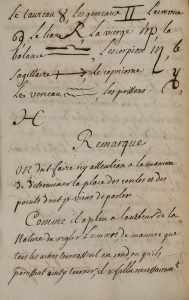 le taureau ♉, les gemeaux ♊ L'ecrevice
♋ le lion ♌, la vierge ♍ la
balance ♎, le scorpion ♏, le
Sagittaire ♐, le capricorne ♑
Le verseau ♒, les poissons
♓
Remarque
on doit faire icy attention a la maniere
de determiner la place des cercles et des
points dont je viens de parler.
Comme il a plu a l'autheur de la
Nature de regler L'univers de maniere que
tous les astres tournassent en rond ou qu'ils
parussent ainsy tourner, il a fallu necessairemt